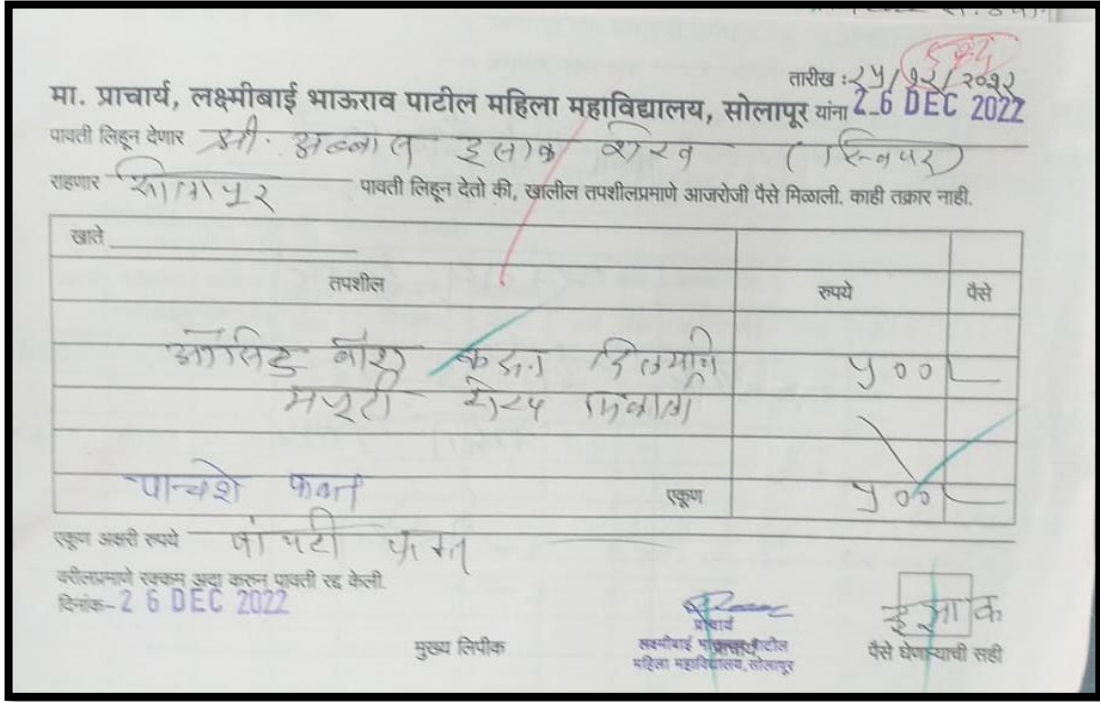 तारीख : २५/१२/२०२२
मा. प्राचार्य, लक्ष्मीबाई भाऊराव पाटील महिला महाविद्यालय, सोलापूर यांना 26 DEC 2022
पावती लिहून देणार श्री. अब्बास इसाक शेख (स्विपर)
राहणार सोलापूर पावती लिहून देतो की, खालील तपशीलप्रमाणे आजरोजी पैसे मिळाली. काही तक्रार नाही.
खाते
तपशील रुपये पैसे
ॲसिड वॉश करून ५००/-
पाचशे फक्त एकूण ५००/-
एकूण अक्षरी रुपये फक्त
वरीलप्रमाणे रक्कम अदा करुन पावती रद्द केली.
दिनांक- 26 DEC 2022
मुख्य लिपीक
प्राचार्य
प्राचार्य
लक्ष्मीबाई भाऊराव पाटील
महिला महाविद्यालय, सोलापूर
इसाक
पैसे घेणाऱ्याची सही